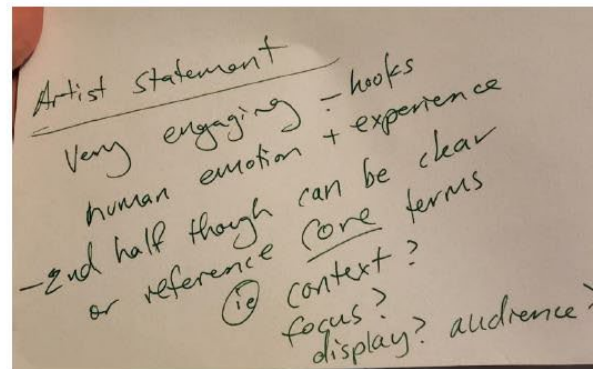 Artist Statement
Very engaging - hooks
human emotion + experience
- 2nd half though can be clear
or reference core terms
ie context?
focus?
display? audience?